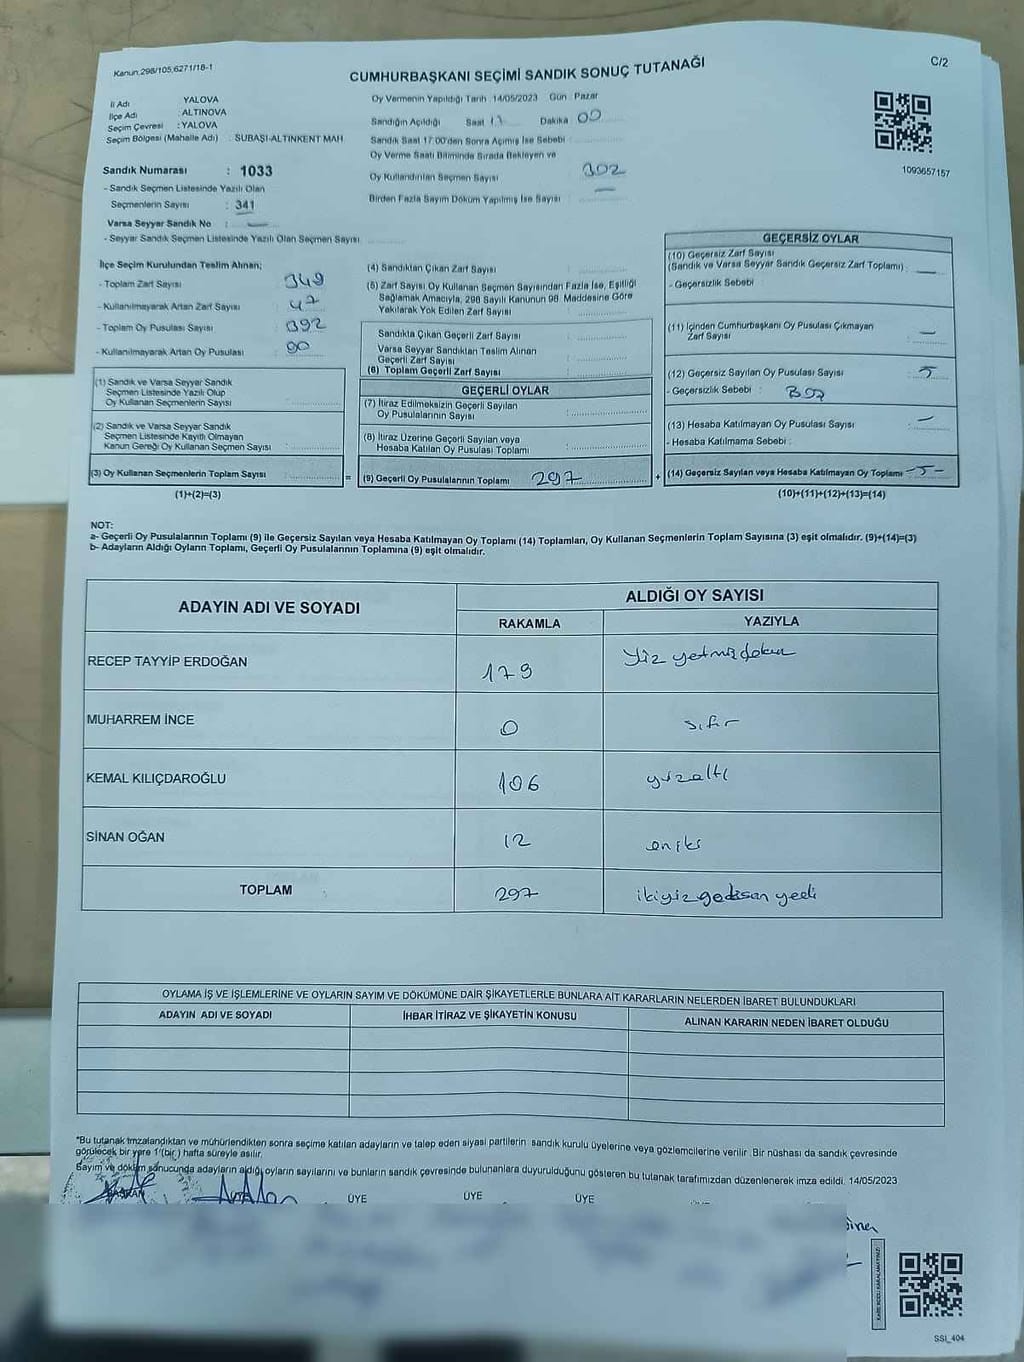 Kanun:298/105,6271/18-1
CUMHURBAŞKANI SEÇİMİ SANDIK SONUÇ TUTANAĞI
C/2
İl Adı YALOVA
İlçe Adı : ALTINOVA
Seçim Çevresi : YALOVA
Seçim Bölgesi (Mahalle Adı) : SUBAŞI-ALTINKENT MAH
Sandık Numarası : 1033
- Sandık Seçmen Listesinde Yazılı Olan
Seçmenlerin Sayısı : 341
Varsa Seyyar Sandık No : —
- Seyyar Sandık Seçmen Listesinde Yazılı Olan Seçmen Sayısı
Oy Vermenin Yapıldığı Tarih 14/05/2023 Gün : Pazar
Sandığın Açıldığı Saat Dakika 00
Sandık Saat 17:00'den Sonra Açımış İse Sebebi :
Oy Verme Saati Bitiminde Sırada Bekleyen ve
Oy Kullandırılan Seçmen Sayısı 302
Birden Fazla Sayım Döküm Yapılmış İse Sayısı —
1093657157
İlçe Seçim Kurulundan Teslim Alınan;
- Toplam Zarf Sayısı 349
- Kullanılmayarak Artan Zarf Sayısı 47
- Toplam Oy Pusulası Sayısı 392
- Kullanılmayarak Artan Oy Pusulası 90
(1) Sandık ve Varsa Seyyar Sandık
Seçmen Listesinde Yazılı Olup
Oy Kullanan Seçmenlerin Sayısı
(2) Sandık ve Varsa Seyyar Sandık
Seçmen Listesinde Kayıtlı Olmayan
Kanun Gereği Oy Kullanan Seçmen Sayısı :
(3) Oy Kullanan Seçmenlerin Toplam Sayısı : =
(1)+(2)=(3)
(4) Sandıktan Çıkan Zarf Sayısı :
(5) Zarf Sayısı Oy Kullanan Seçmen Sayısından Fazla İse, Eşitliği
Sağlamak Amacıyla, 298 Sayılı Kanunun 98. Maddesine Göre
Yakılarak Yok Edilen Zarf Sayısı
Sandıkta Çıkan Geçerli Zarf Sayısı :
Varsa Seyyar Sandıktan Teslim Alınan
Geçerli Zarf Sayısı
(6) Toplam Geçerli Zarf Sayısı :
GEÇERLİ OYLAR
(7) İtiraz Edilmeksizin Geçerli Sayılan
Oy Pusulalarının Sayısı :
(8) İtiraz Üzerine Geçerli Sayılan veya
Hesaba Katılan Oy Pusulası Toplamı :
(9) Geçerli Oy Pusulalarının Toplamı 297 +
GEÇERSİZ OYLAR
(10) Geçersiz Zarf Sayısı
(Sandık ve Varsa Seyyar Sandık Geçersiz Zarf Toplamı) : —
- Geçersizlik Sebebi :
(11) İçinden Cumhurbaşkanı Oy Pusulası Çıkmayan
Zarf Sayısı : —
(12) Geçersiz Sayılan Oy Pusulası Sayısı : 5
- Geçersizlik Sebebi :
(13) Hesaba Katılmayan Oy Pusulası Sayısı : —
- Hesaba Katılmama Sebebi :
(14) Geçersiz Sayılan veya Hesaba Katılmayan Oy Toplamı -5-
(10)+(11)+(12)+(13)=(14)
NOT:
a- Geçerli Oy Pusulalarının Toplamı (9) ile Geçersiz Sayılan veya Hesaba Katılmayan Oy Toplamı (14) Toplamları, Oy Kullanan Seçmenlerin Toplam Sayısına (3) eşit olmalıdır. (9)+(14)=(3)
b- Adayların Aldığı Oyların Toplamı, Geçerli Oy Pusulalarının Toplamına (9) eşit olmalıdır.
ADAYIN ADI VE SOYADI
ALDIĞI OY SAYISI
RAKAMLA YAZIYLA
RECEP TAYYİP ERDOĞAN 179 Yüz yetmiş dokuz
MUHARREM İNCE 0 sıfır
KEMAL KILIÇDAROĞLU 106 yüzaltı
SİNAN OĞAN 12 oniki
TOPLAM 297 ikiyüz doksan yedi
OYLAMA İŞ VE İŞLEMLERİNE VE OYLARIN SAYIM VE DÖKÜMÜNE DAİR ŞİKAYETLERLE BUNLARA AİT KARARLARIN NELERDEN İBARET BULUNDUKLARI
ADAYIN ADI VE SOYADI İHBAR İTİRAZ VE ŞİKAYETİN KONUSU ALINAN KARARIN NEDEN İBARET OLDUĞU
*Bu tutanak imzalandıktan ve mühürlendikten sonra seçime katılan adayların ve talep eden siyasi partilerin sandık kurulu üyelerine veya gözlemcilerine verilir. Bir nüshası da sandık çevresinde
görülecek bir yere 1 (bir) hafta süreyle asılır.
Sayım ve döküm sonucunda adayların aldığı oyların sayılarını ve bunların sandık çevresinde bulunanlara duyurulduğunu gösteren bu tutanak tarafımızdan düzenlenerek imza edildi. 14/05/2023
BAŞKAN ÜYE ÜYE ÜYE
SSI_404